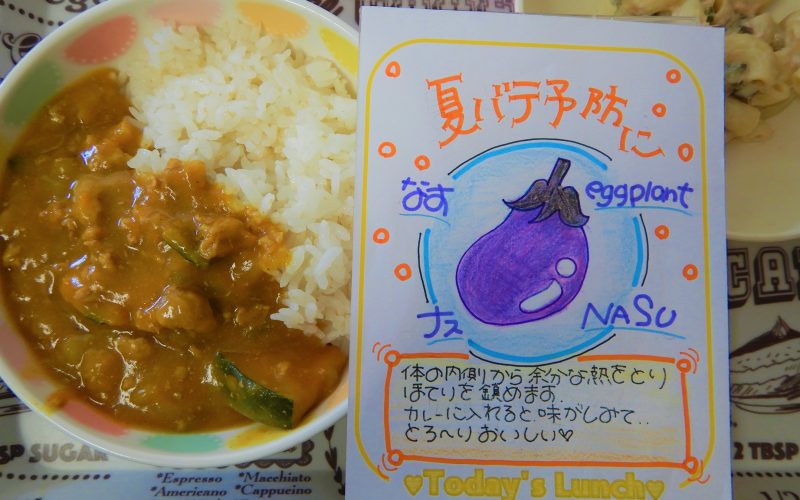 夏バテ予防に
なす
eggplant
ナス
NASU
体の内側から余分な熱をとり
ほてりを鎮めます.
カレーに入れると味がしみて..
とろ〜りおいしい♡
♥Today's Lunch♥
SP SUGAR
*Espresso *Macchiato
*Americano *Cappucino
CA
2 TBSP